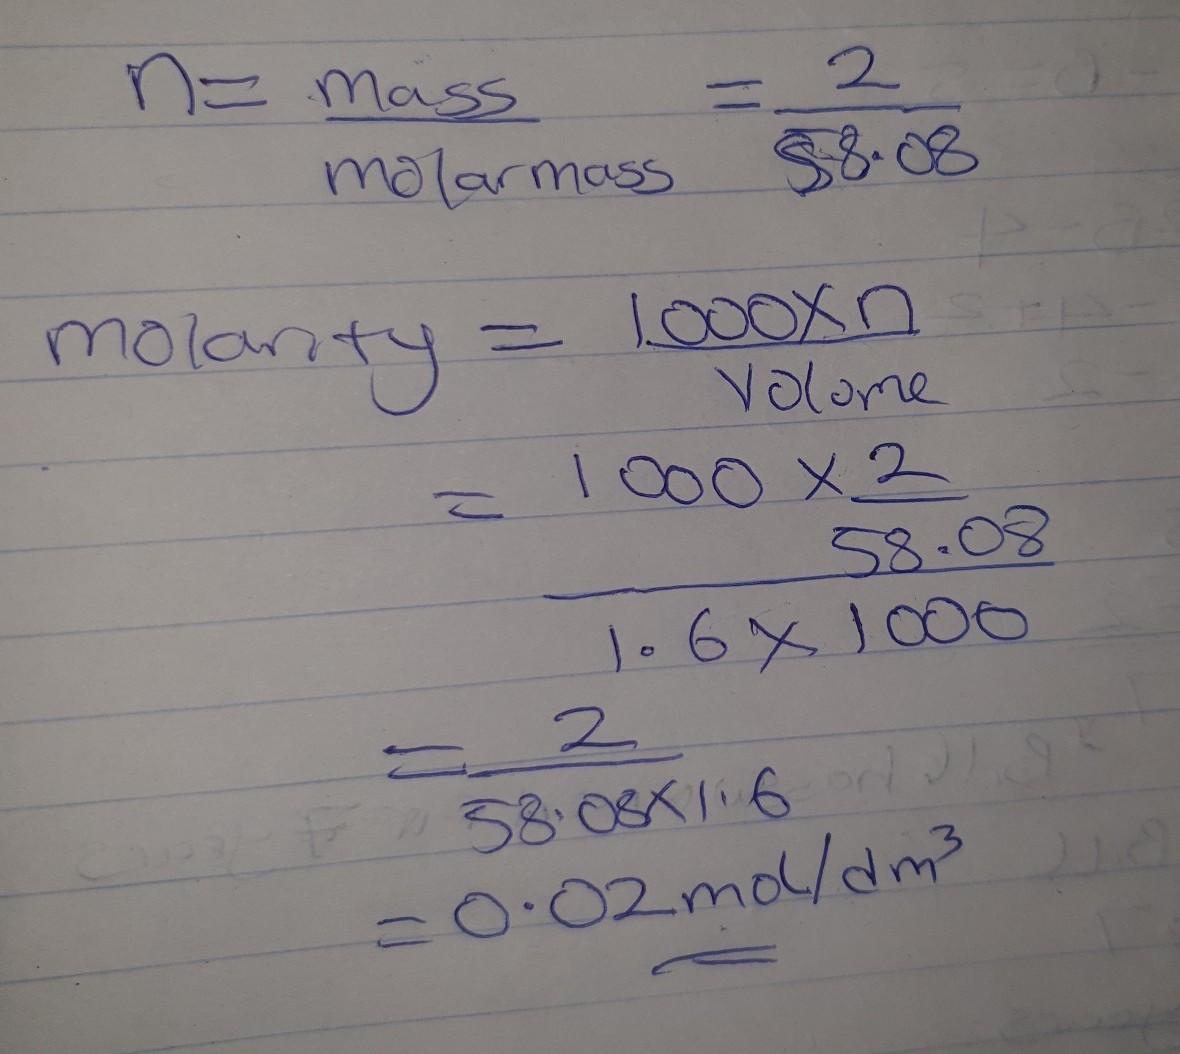 n = mass = 2
molarmass 58.08
molarity = 1000 x n
volume
= 1000 x 2
58.08
1.6 x 1000
= 2
58.08 x 1.6
= 0.02 mol/dm³